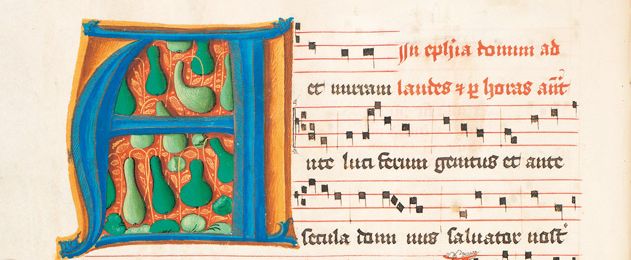 In ephia domini ad
et laudes & p horas ant
Ante luci ferum genitus et ante
secula domi nus salvator nost